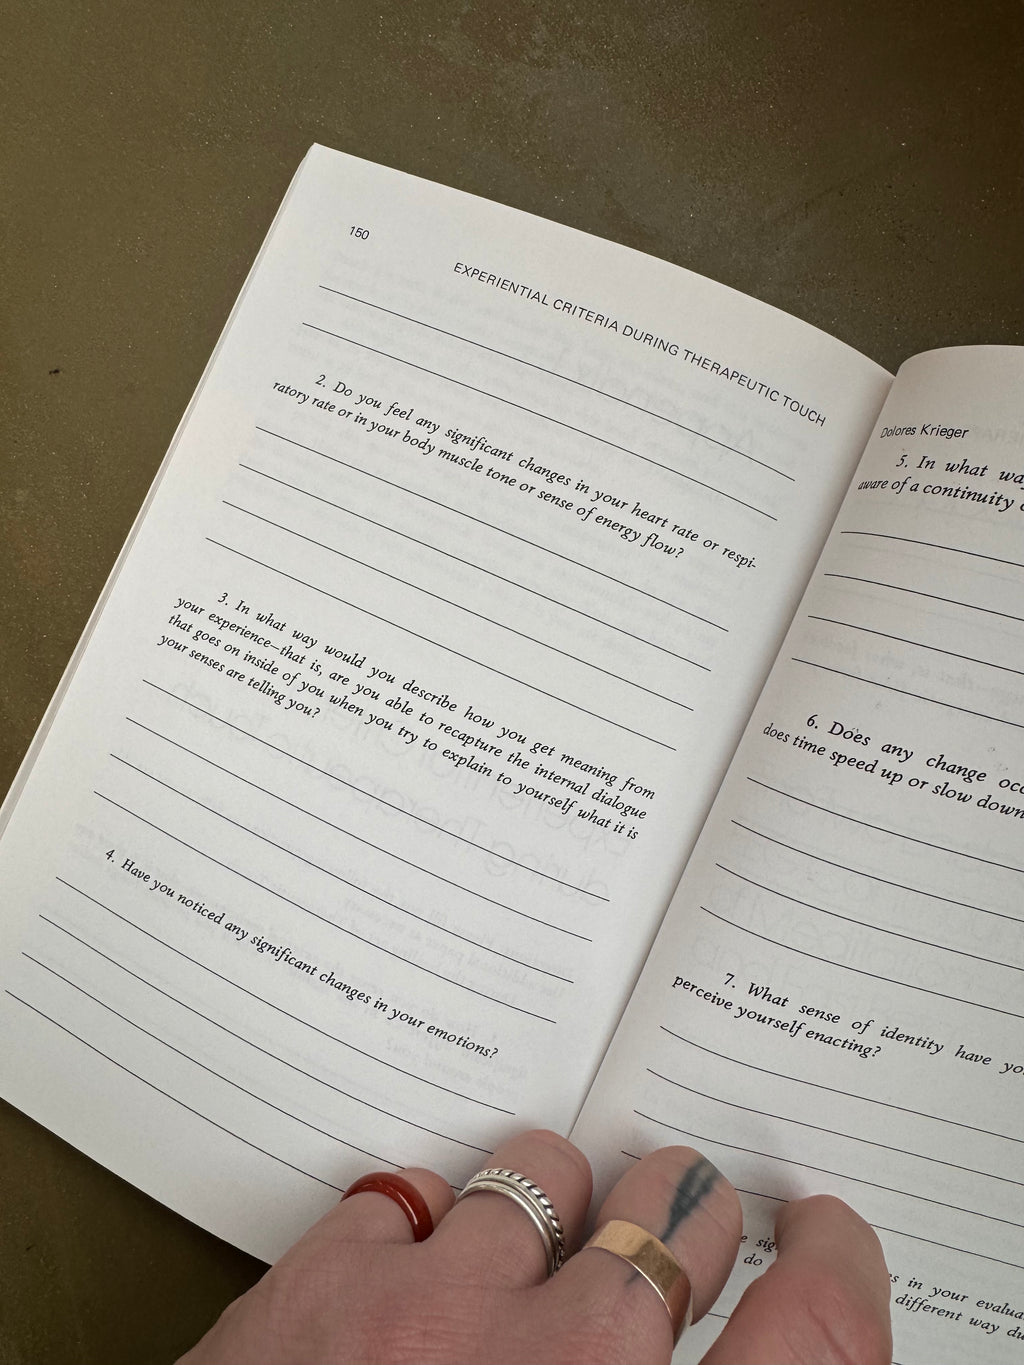 150
EXPERIENTIAL CRITERIA DURING THERAPEUTIC TOUCH
2. Do you feel any significant changes in your heart rate or respi-
ratory rate or in your body muscle tone or sense of energy flow?
3. In what way would you describe how you get meaning from
your experience—that is, are you able to recapture the internal dialogue
that goes on inside of you when you try to explain to yourself what it is
your senses are telling you?
4. Have you noticed any significant changes in your emotions?
Dolores Krieger
5. In what
aware of a continuity
6. Does any change
does time speed up or slow down
7. What sense of identity have
perceive yourself enacting?
in your
do different way